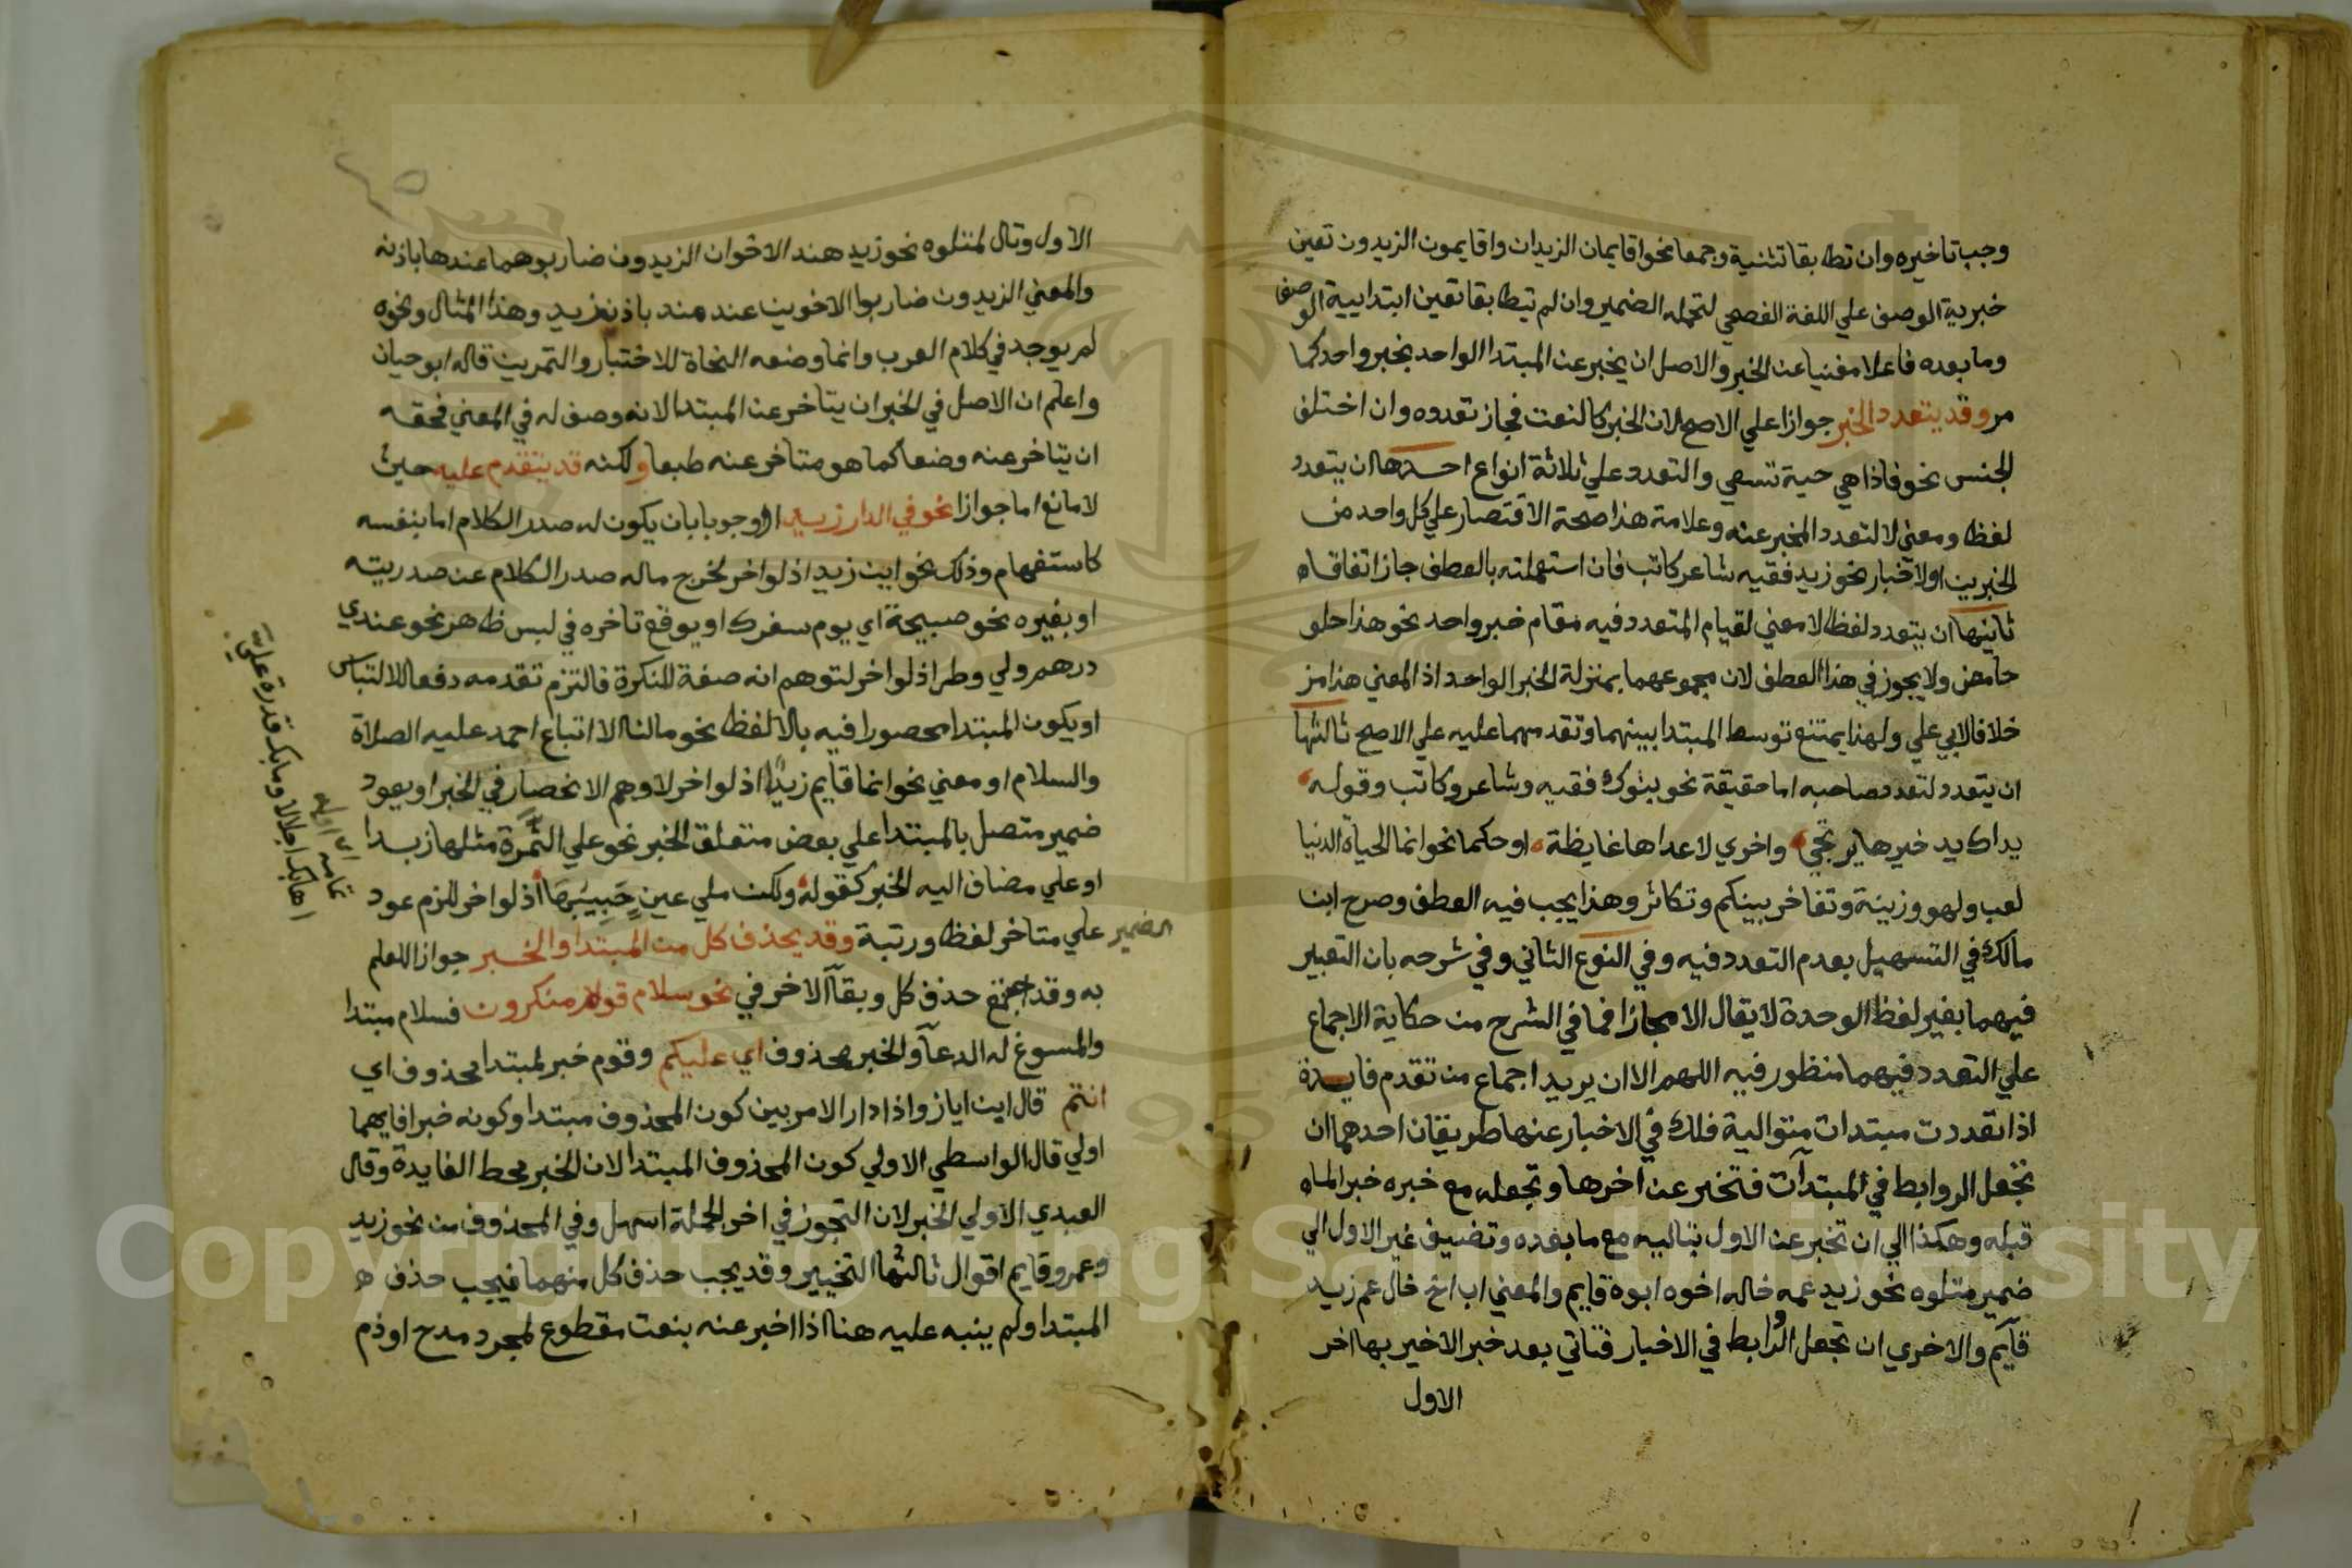 وجب تاخيره وان تطابقا تثنية وجمعا نحو اقايمان الزيدان واقايمون الزيدون تعين
خبرية الوصف علي اللغة الفصحي لتحمله الضمير وان لم يتطابقا تعين ابتدايية الوصف
وما بعده فاعلا مغنيا عن الخبر والاصل ان يخبر عن المبتدا الواحد بخبر واحد كما
مر وقد يتعدد الخبر جوازا علي الاصح لان الخبر كالنعت فجاز تعدده وان اختلف
الجنس نحو فاذا هي حية تسعي والتعدد علي ثلاثة انواع احدها ان يتعدد
لفظا ومعني لا لتعدد المخبر عنه وعلامة هذا صحة الاقتصار علي كل واحد من
الخبرين او الاخبار نحو زيد فقيه شاعر كاتب فان استعملته بالعطف جاز اتفاقا
ثانيها ان يتعدد لفظا لا معني لقيام المتعدد فيه مقام خبر واحد نحو هذا حلو
حامض ولا يجوز في هذا العطف لان مجموعهما بمنزلة الخبر الواحد اذ المعني هذا مز
خلافا لابي علي ولهذا يمتنع توسط المبتدا بينهما وتقدمهما عليه علي الاصح ثالثها
ان يتعدد لتعدد صاحبه اما حقيقة نحو بنوك فقيه وشاعر وكاتب وقوله
يداك يد خيرها يرتجي واخري لاعداها غايظة او حكما نحو انما الحياة الدنيا
لعب ولهو وزينة وتفاخر بينكم وتكاثر وهذا يجب فيه العطف وصرح ابن
مالك في التسهيل بعدم التعدد فيه وفي النوع الثاني وفي شرحه بان التعبير
فيهما بغير لفظ الوحدة لا يقال الا مجازا فما في الشرح من حكاية الاجماع
علي التعدد فيهما منظور فيه اللهم الا ان يريد اجماع من تقدم فايدة
اذا تعددت مبتدات متوالية فلك في الاخبار عنها طريقان احدهما ان
تجعل الروابط في المبتدآت فتخبر عن اخرها وتجعله مع خبره خبر الما
قبله وهكذا الي ان تخبر عن الاول بتاليه مع ما بعده وتضيف غير الاول الي
ضمير متلوه نحو زيد عمه خاله اخوه ابوه قايم والمعني اب اخ خال عم زيد
قآيم والاخري ان تجعل الروابط في الاخبار فتاتي بعد خبر الاخير بها اخر
الاول
الاول وتال لمتلوه نحو زيد هند الاخوان الزيدون ضاربوهما عندها باذنه
والمعني الزيدون ضاربوا الاخوين عند هند باذن زيد وهذا المثال ونحوه
لم يوجد في كلام العرب وانما وضعه النحاة للاختبار والتمرين قاله ابو حيان
واعلم ان الاصل في الخبر ان يتاخر عن المبتدا لانه وصف له في المعني فحقه
ان يتاخر عنه وضعا كما هو متاخر عنه طبعا ولكنه قد يتقدم عليه حيث
لا مانع اما جوازا نحو في الدار زيد او وجوبا بان يكون له صدر الكلام اما بنفسه
كاستفهام وذلك نحو اين زيد اذ لو اخر لخرج ماله صدر الكلام عن صدريته
او بغيره نحو صبيحة اي يوم سفرك او يوقع تاخره في لبس ظاهر نحو عندي
درهم ولي وطر اذ لو اخر لتوهم انه صفة للنكرة فالتزم تقدمه دفعا للالتباس
او يكون المبتدا محصورا فيه بالا لفظا نحو مالنا الا اتباع احمد عليه الصلاة
والسلام او معني نحو انما قايم زيد اذ لو اخر لاوهم الانحصار في الخبر او يعود
ضمير متصل بالمبتدا علي بعض متعلق الخبر نحو علي التمرة مثلها زبدا
او علي مضاف اليه الخبر كقوله ولكن ملي عين حبيبها اذ لو اخر للزم عود
الضمير علي متاخر لفظا ورتبة وقد يحذف كل من المبتدا والخبر جوازا للعلم
به وقد اجتمع حذف كل وبقآ الاخر في نحو سلام قوم منكرون فسلام مبتدا
والمسوغ له الدعآ والخبر محذوف اي عليكم وقوم خبر لمبتدا محذوف اي
انتم قال ابن اياز واذا دار الامر بين كون المحذوف مبتدا وكونه خبرا فايهما
اولي قال الواسطي الاولي كون المحذوف المبتدا لان الخبر محط الفايدة وقال
العبدي الاولي الخبر لان التجوز في اخر الجملة اسهل وفي المحذوف من نحو زيد
وعمرو قايم اقوال ثالثها التخيير وقد يجب حذف كل منهما فيجب حذف
المبتدا ولم ينبه عليه هنا اذا اخبر عنه بنعت مقطوع لمجرد مدح او ذم
تمامه
اهابك اجلالا ومابك قدرة علي
Copyright © King Saud University